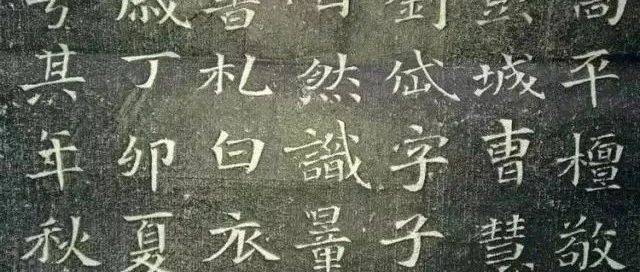 高平檀敬
彭城曹慧
劉岱字子
然識量
書札白衣
歲丁卯夏
其年秋